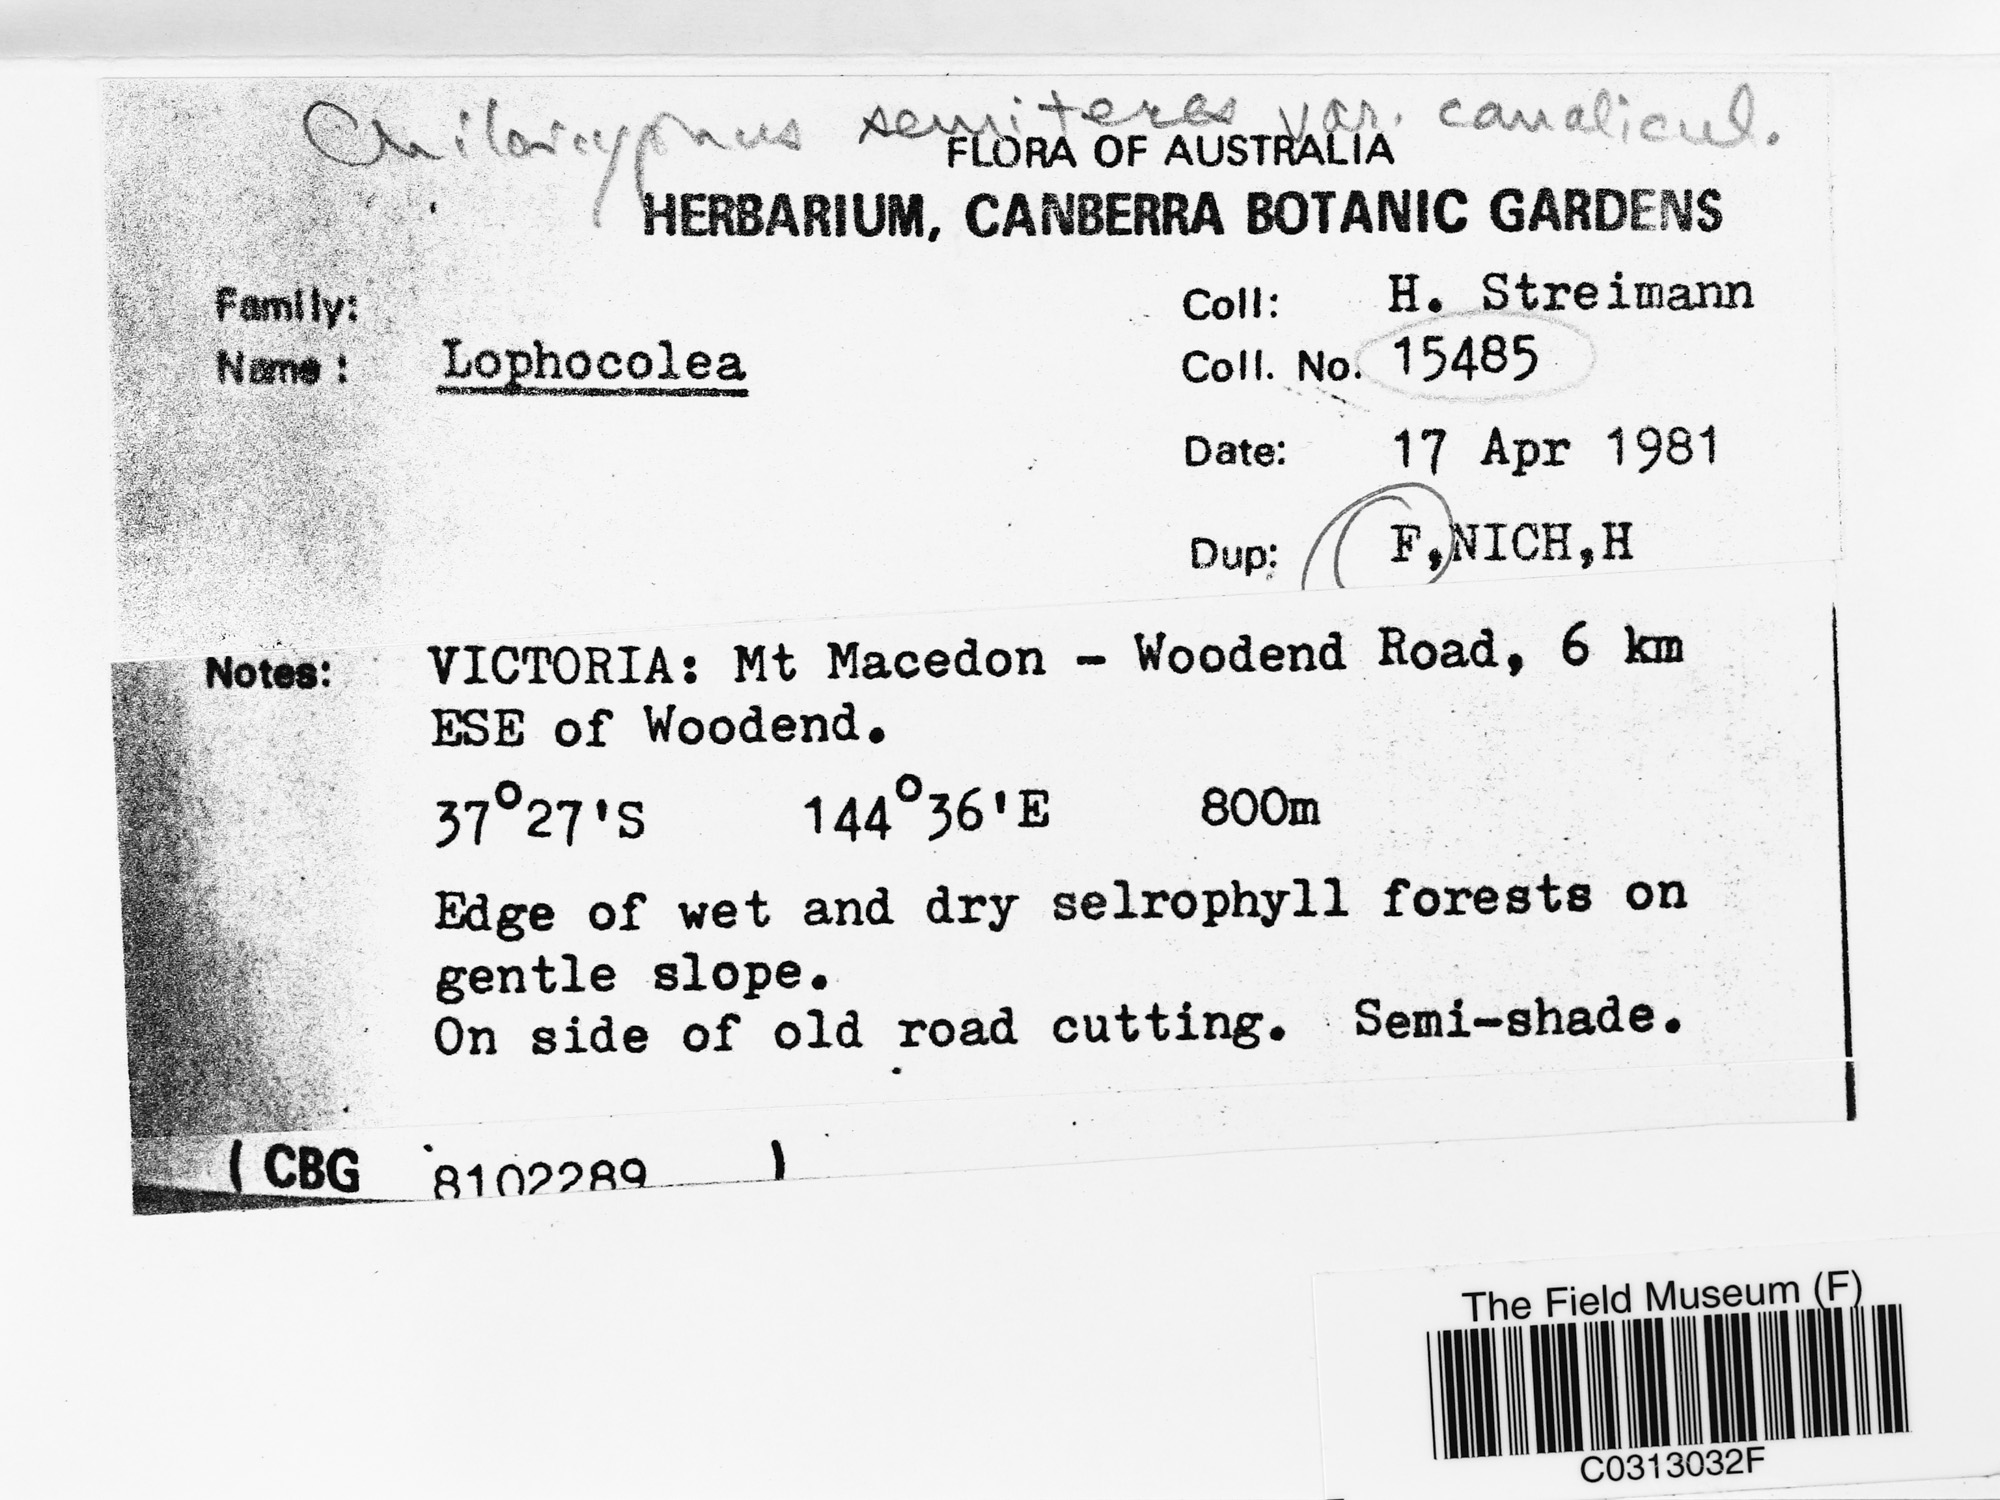 Chiloscyphus semiteres var. canalicul.
FLORA OF AUSTRALIA
HERBARIUM, CANBERRA BOTANIC GARDENS
Family:
Coll: H. Streimann
Name: Lophocolea
Coll. No. 15485
Date: 17 Apr 1981
Dup: F,NICH,H
Notes: VICTORIA: Mt Macedon - Woodend Road, 6 km
ESE of Woodend.
37°27'S 144°36'E 800m
Edge of wet and dry selrophyll forests on
gentle slope.
On side of old road cutting. Semi-shade.
(CBG 8102289 )
The Field Museum (F)
C0313032F